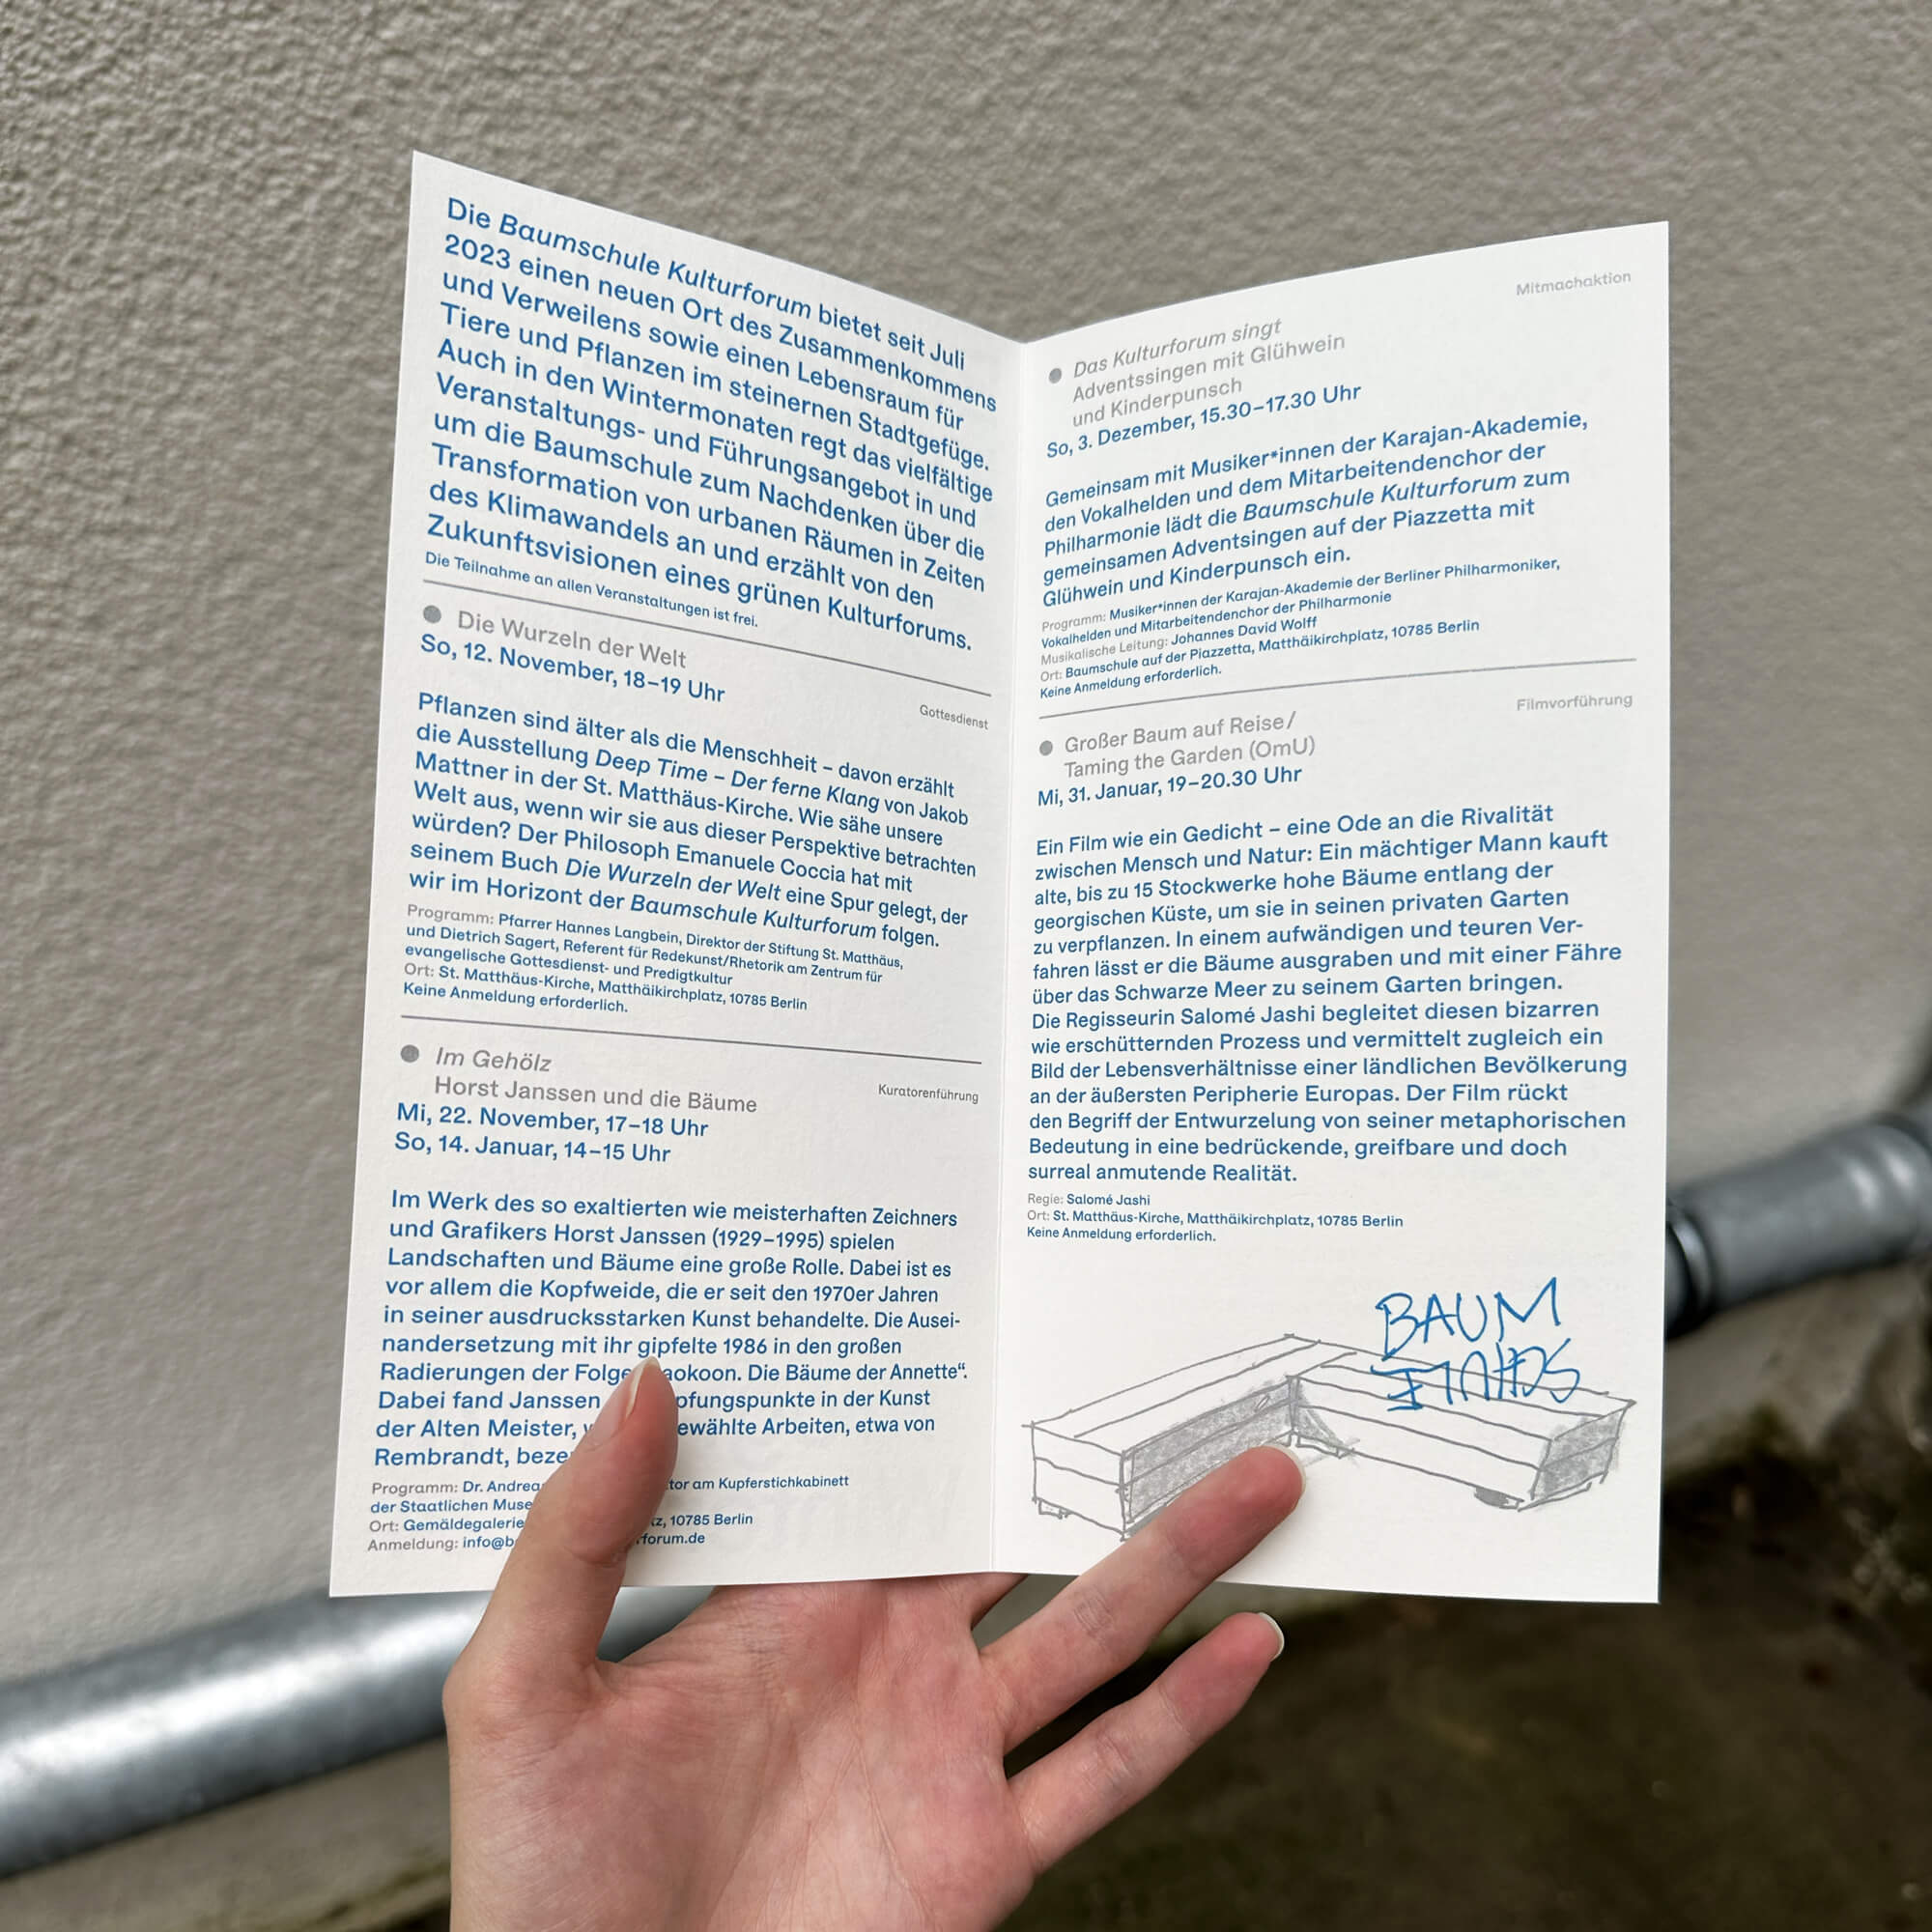 Die Baumschule Kulturforum bietet seit Juli
2023 einen neuen Ort des Zusammenkommens
und Verweilens sowie einen Lebensraum für
Tiere und Pflanzen im steinernen Stadtgefüge.
Auch in den Wintermonaten regt das vielfältige
Veranstaltungs- und Führungsangebot in und
um die Baumschule zum Nachdenken über die
Transformation von urbanen Räumen in Zeiten
des Klimawandels an und erzählt von den
Zukunftsvisionen eines grünen Kulturforums.
Die Teilnahme an allen Veranstaltungen ist frei.
Die Wurzeln der Welt
So, 12. November, 18–19 Uhr
Gottesdienst
Pflanzen sind älter als die Menschheit – davon erzählt
die Ausstellung Deep Time – Der ferne Klang von Jakob
Mattner in der St. Matthäus-Kirche. Wie sähe unsere
Welt aus, wenn wir sie aus dieser Perspektive betrachten
würden? Der Philosoph Emanuele Coccia hat mit
seinem Buch Die Wurzeln der Welt eine Spur gelegt, der
wir im Horizont der Baumschule Kulturforum folgen.
Programm: Pfarrer Hannes Langbein, Direktor der Stiftung St. Matthäus,
und Dietrich Sagert, Referent für Redekunst/Rhetorik am Zentrum für
evangelische Gottesdienst- und Predigtkultur
Ort: St. Matthäus-Kirche, Matthäikirchplatz, 10785 Berlin
Keine Anmeldung erforderlich.
Im Gehölz
Horst Janssen und die Bäume
Kuratorenführung
Mi, 22. November, 17–18 Uhr
So, 14. Januar, 14–15 Uhr
Im Werk des so exaltierten wie meisterhaften Zeichners
und Grafikers Horst Janssen (1929–1995) spielen
Landschaften und Bäume eine große Rolle. Dabei ist es
vor allem die Kopfweide, die er seit den 1970er Jahren
in seiner ausdrucksstarken Kunst behandelte. Die Ausei-
nandersetzung mit ihr gipfelte 1986 in den großen
Radierungen der Folge aokoon. Die Bäume der Annette“.
Dabei fand Janssen pfungspunkte in der Kunst
der Alten Meister, ewählte Arbeiten, etwa von
Rembrandt, beze
Programm: Dr. Andrea tor am Kupferstichkabinett
der Staatlichen Muse
Ort: Gemäldegalerie tz, 10785 Berlin
Anmeldung: info@b forum.de
Mitmachaktion
Das Kulturforum singt
Adventssingen mit Glühwein
und Kinderpunsch
So, 3. Dezember, 15.30–17.30 Uhr
Gemeinsam mit Musiker*innen der Karajan-Akademie,
den Vokalhelden und dem Mitarbeitendenchor der
Philharmonie lädt die Baumschule Kulturforum zum
gemeinsamen Adventsingen auf der Piazzetta mit
Glühwein und Kinderpunsch ein.
Programm: Musiker*innen der Karajan-Akademie der Berliner Philharmoniker,
Vokalhelden und Mitarbeitendenchor der Philharmonie
Musikalische Leitung: Johannes David Wolff
Ort: Baumschule auf der Piazzetta, Matthäikirchplatz, 10785 Berlin
Keine Anmeldung erforderlich.
Filmvorführung
Großer Baum auf Reise/
Taming the Garden (OmU)
Mi, 31. Januar, 19–20.30 Uhr
Ein Film wie ein Gedicht – eine Ode an die Rivalität
zwischen Mensch und Natur: Ein mächtiger Mann kauft
alte, bis zu 15 Stockwerke hohe Bäume entlang der
georgischen Küste, um sie in seinen privaten Garten
zu verpflanzen. In einem aufwändigen und teuren Ver-
fahren lässt er die Bäume ausgraben und mit einer Fähre
über das Schwarze Meer zu seinem Garten bringen.
Die Regisseurin Salomé Jashi begleitet diesen bizarren
wie erschütternden Prozess und vermittelt zugleich ein
Bild der Lebensverhältnisse einer ländlichen Bevölkerung
an der äußersten Peripherie Europas. Der Film rückt
den Begriff der Entwurzelung von seiner metaphorischen
Bedeutung in eine bedrückende, greifbare und doch
surreal anmutende Realität.
Regie: Salomé Jashi
Ort: St. Matthäus-Kirche, Matthäikirchplatz, 10785 Berlin
Keine Anmeldung erforderlich.
BAUM
SCHULE